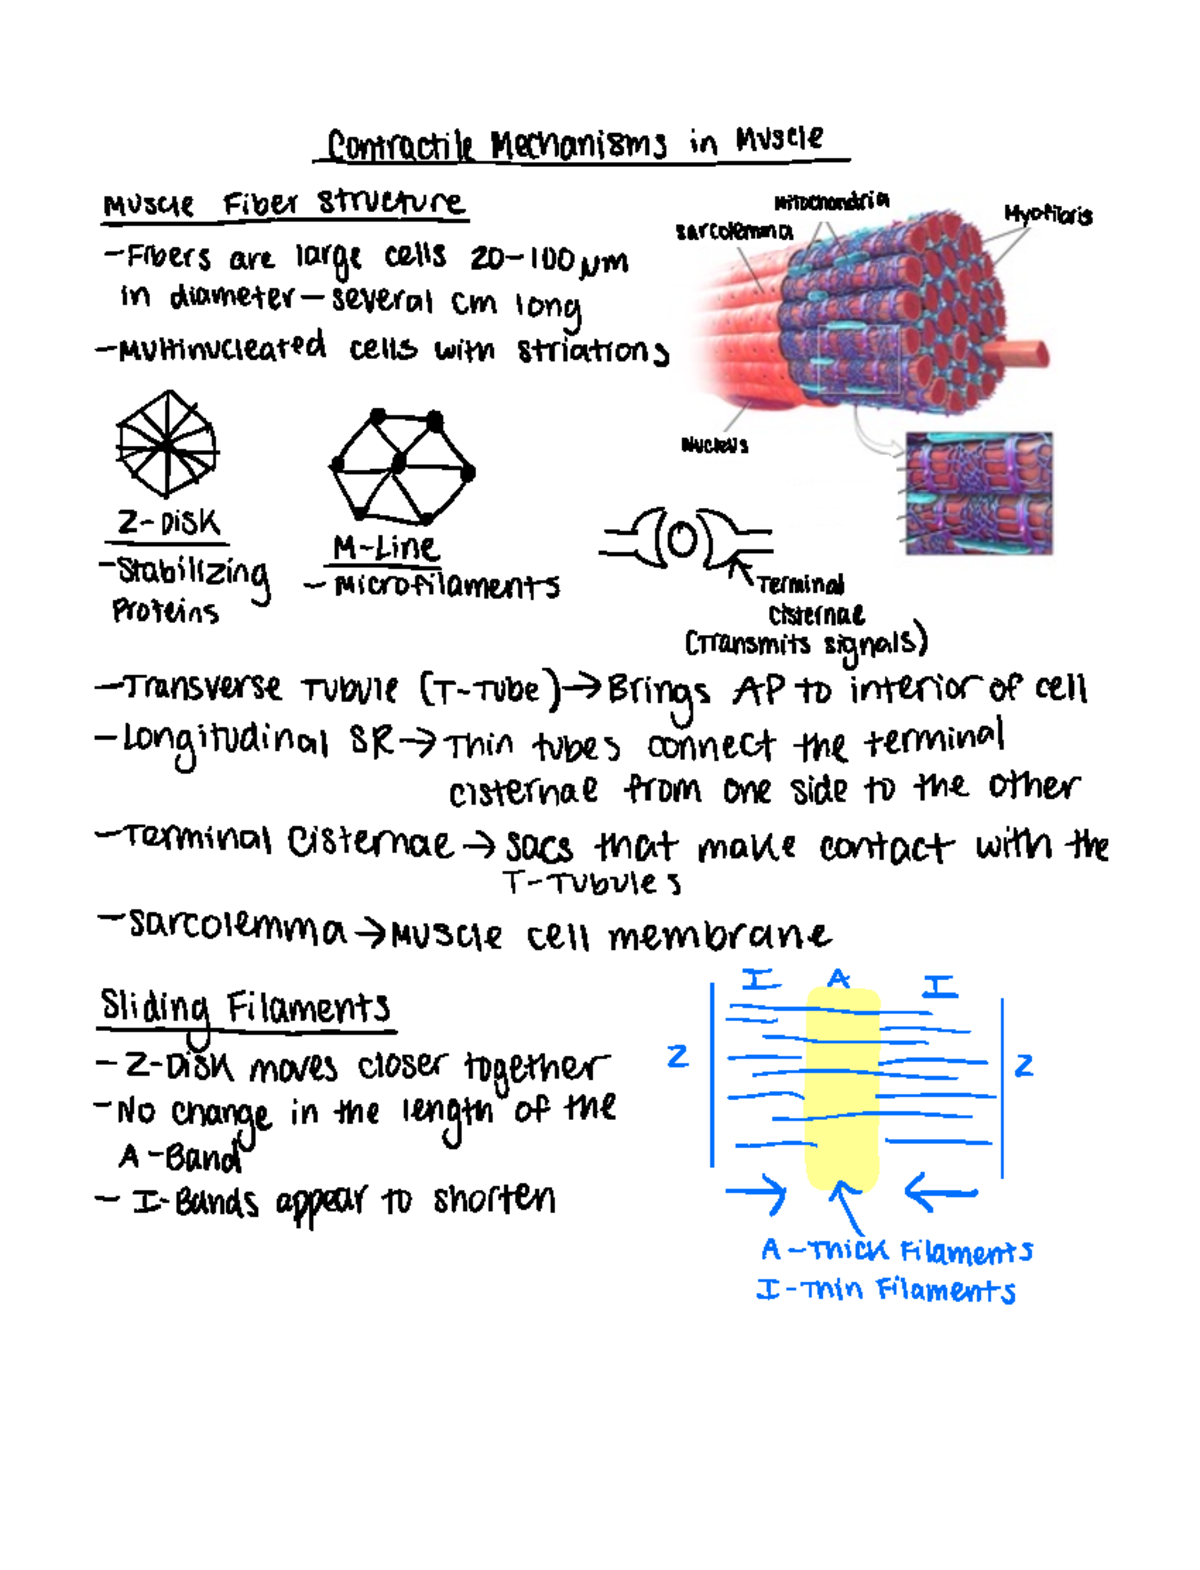 Contractile Mechanisms in Muscle
Muscle Fiber Structure
- Fibers are large cells 20-100 μm
in diameter - several cm long
- Multinucleated cells with striations
Mitochondria
Sarcolemma
Myofibrils
Nucleus
Z-Disk
- Stabilizing
Proteins
M-Line
- Microfilaments
Terminal
Cisternae
(Transmits signals)
- Transverse Tubule (T-Tube) → Brings AP to interior of cell
- Longitudinal SR → Thin tubes connect the terminal
cisternae from one side to the other
- Terminal Cisternae → Sacs that make contact with the
T-Tubules
- Sarcolemma → Muscle cell membrane
Sliding Filaments
- Z-Disk moves closer together
- No change in the length of the
A-Band
- I-Bands appear to shorten
I A I
Z Z
A - Thick Filaments
I - Thin Filaments